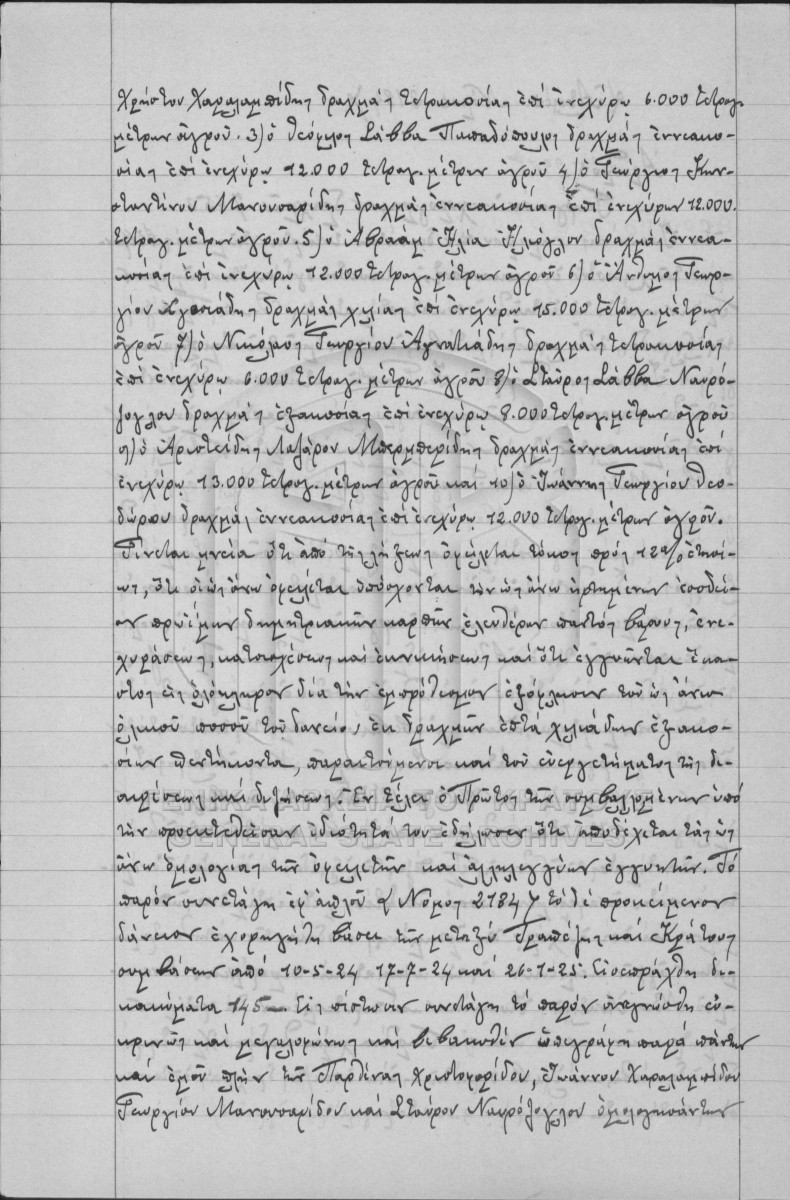 Χρήστου Χαραλαμπίδης δραχμάς τετρακοσίας ἐπί ἐνεχύρῳ 6.000 τετραγ.
μέτρων ἀγροῦ. 3) ὁ Θεόφιλος Σάββα Παπαδόπουλος δραχμάς ἐννεακο-
σίας ἐπί ἐνεχύρῳ 12.000 τετραγ. μέτρων ἀγροῦ 4) ὁ Γεώργιος Κων-
σταντίνου Μανουσαρίδης δραχμάς ἐννεακοσίας ἐπί ἐνεχύρῳ 12.000.
τετραγ. μέτρων ἀγροῦ. 5) ὁ Ἀβραάμ Ἠλία Ἠλιόγλου δραχμάς ἐννεα-
κοσίας ἐπί ἐνεχύρῳ 12.000 τετραγ. μέτρων ἀγροῦ 6) ὁ Ἄνθιμος Γεωρ-
γίου δραχμάς χιλίας ἐπί ἐνεχύρῳ 15.000 τετραγ. μέτρων
ἀγροῦ 7) ὁ Νικόλαος Γεωργίου Ἀγνατιάδης δραχμάς τετρακοσίας
ἐπί ἐνεχύρῳ 6.000 τετραγ. μέτρων ἀγροῦ 8) ὁ Σταῦρος Σάββα Ναυρό-
ζογλου δραχμάς ἑξακοσίας ἐπί ἐνεχύρῳ 8.000 τετραγ. μέτρων ἀγροῦ
9) ὁ Ἀριστείδης Λαζάρου Μπερμπερίδης δραχμάς ἐννεακοσίας ἐπί
ἐνεχύρῳ 13.000 τετραγ. μέτρων ἀγροῦ καί 10) ὁ Ἰωάννης Γεωργίου Θεο-
δώρου δραχμάς ἐννεακοσίας ἐπί ἐνεχύρῳ 12.000 τετραγ. μέτρων ἀγροῦ.
Γίνεται μνεία ὅτι ἀπό τῆς λήξεως ὀφείλεται τόκος πρός 12% ἐτησί-
ως, ὅτι οἱ ὡς ἄνω ὀφειλέται ὑπόσχονται τῶν ὡς ἄνω ἠρτημένων ἐσοδεί-
ων πρωΐμων δημητριακῶν καρπῶν ἐλευθέρων παντός βάρους, ἐνε-
χυράσεως, κατασχέσεως καί ἐκνικήσεως καί ὅτι ἐγγυῶνται ἕκα-
στος εἰς ὁλόκληρον διά τήν ἐμπρόθεσμον ἐξόφλησιν τοῦ ὡς ἄνω
ὁλικοῦ ποσοῦ τοῦ δανείου ἐκ δραχμῶν ἑπτά χιλιάδων ἑξακο-
σίων πεντήκοντα, παραιτούμενοι καί τοῦ εὐεργετήματος τῆς δι-
αιρέσεως καί διζήσεως. Ἐν τέλει ὁ Πρῶτος τῶν συμβαλλομένων ὑπό
τήν προεκτεθεῖσαν ἰδιότητά του ἐδήλωσεν ὅτι ἀποδέχεται τάς ὡς
ἄνω ὁμολογίας τῶν ὀφειλετῶν καί ἀλληλεγγύων ἐγγυητῶν. Τό
παρόν συνετάγη ἐφ' ἁπλοῦ (Νόμος 2184) τό δέ προκείμενον
δάνειον ἐχορηγήθη βάσει τῶν μεταξύ Τραπέζης καί Κράτους
συμβάσεων ἀπό 10-5-24 17-7-24 καί 26-1-25. Εἰσεπράχθη δι-
καιώματα 145 —. Εἰς πίστωσιν συνετάγη τό παρόν ἀνεγνώσθη εὐ-
κρινῶς καί μεγαλοφώνως καί βεβαιωθέν ὑπεγράφη παρά πάντων
καί ἐμοῦ πλήν τῶν Παρθένας Χριστοφορίδου, Ἰωάννου Χαραλαμπίδου
Γεωργίου Μανουσαρίδου καί Σταύρου Ναυρόζογλου ὁμολογησάντων
GENERAL STATE ARCHIVES